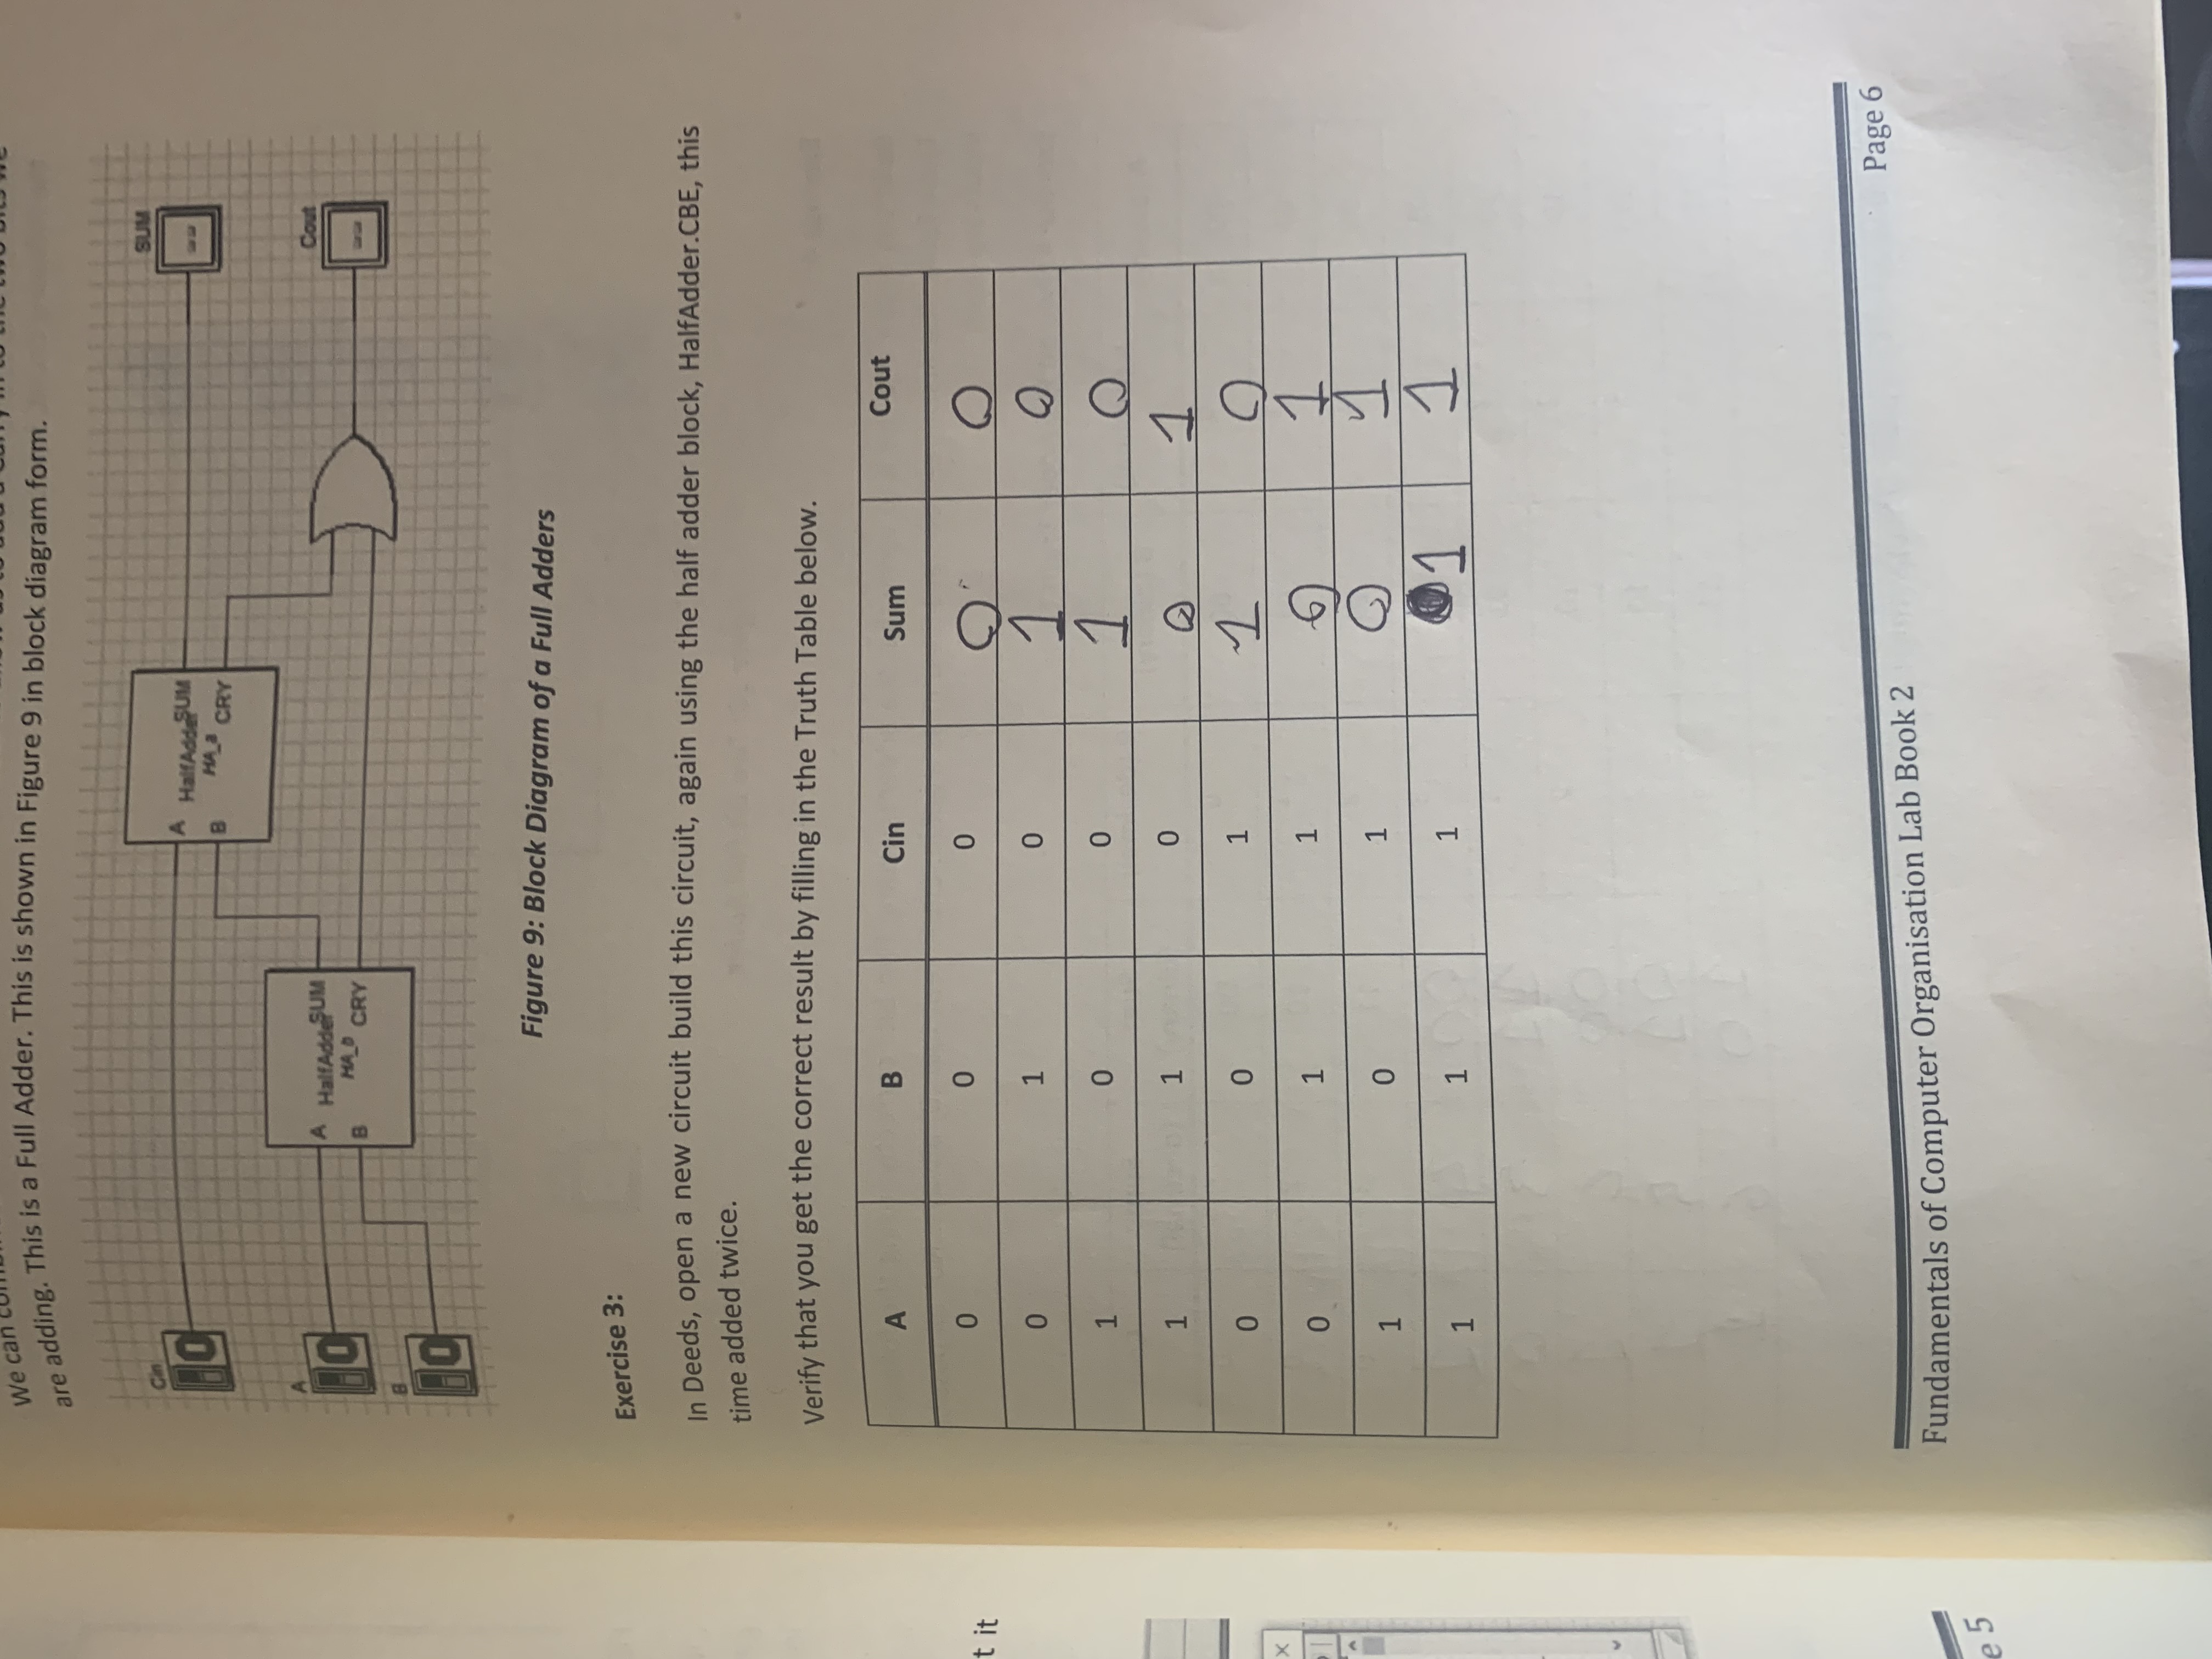 We can
are adding. This is a Full Adder. This is shown in Figure 9 in block diagram form.
Cin
0
A
0
B
0
A HalfAdder SUM
HA_b
B CRY
A HalfAdder SUM
HA_a
B CRY
SUM
--
Cout
--
Figure 9: Block Diagram of a Full Adders
Exercise 3:
In Deeds, open a new circuit build this circuit, again using the half adder block, HalfAdder.CBE, this
time added twice.
Verify that you get the correct result by filling in the Truth Table below.
A B Cin Sum Cout
0 0 0 0 0
0 1 0 1 0
1 0 0 1 0
1 1 0 0 1
0 0 1 1 0
0 1 1 0 1
1 0 1 0 1
1 1 1 1 1
Fundamentals of Computer Organisation Lab Book 2
Page 6
t it
e 5